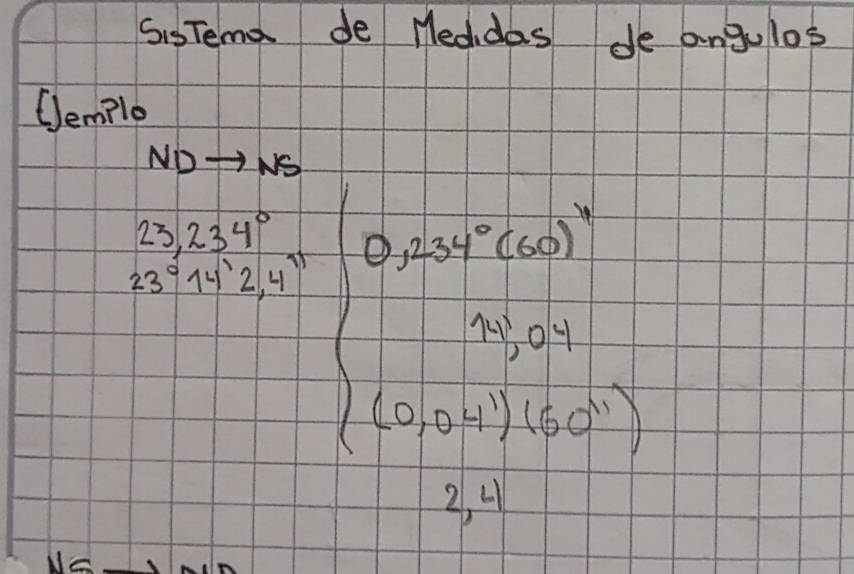 SisTema de Medidas de angulos
Ejemplo
ND → NS
23,234°
23° 14' 2,4"
0,234° (60)"
14',04
(0,04') (60")
2,4
NS → ND